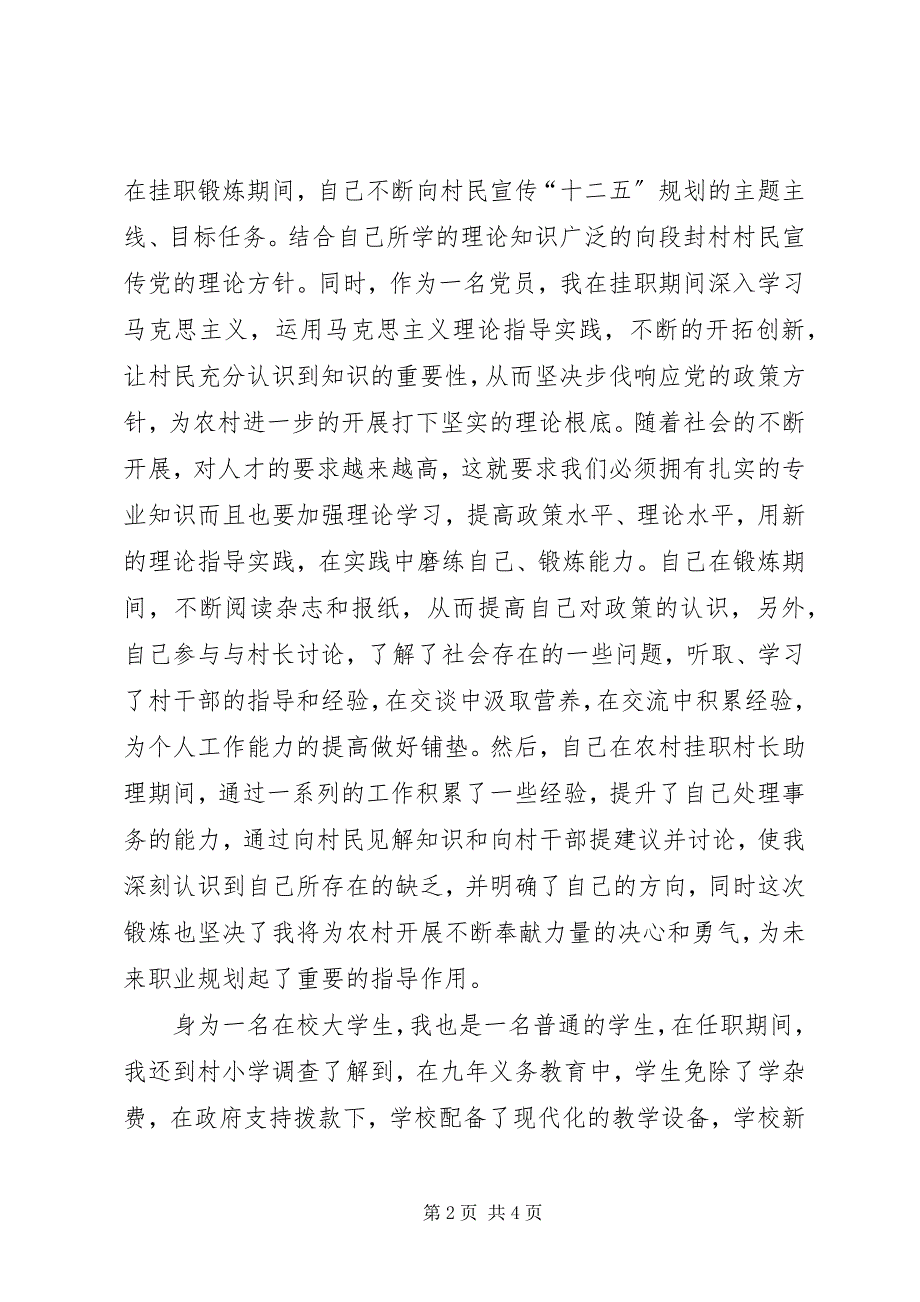 在挂职锻炼期间，自己不断向村民宣传“十二五〞规划的主题主
线、目标任务。结合自己所学的理论知识广泛的向段封村村民宣
传党的理论方针。同时，作为一名党员，我在挂职期间深入学习
马克思主义，运用马克思主义理论指导实践，不断的开拓创新，
让村民充分认识到知识的重要性，从而坚决步伐响应党的政策方
针，为农村进一步的开展打下坚实的理论根底。随着社会的不断
开展，对人才的要求越来越高，这就要求我们必须拥有扎实的专
业知识而且也要加强理论学习，提高政策水平、理论水平，用新
的理论指导实践，在实践中磨练自己、锻炼能力。自己在锻炼期
间，不断阅读杂志和报纸，从而提高自己对政策的认识，另外，
自己参与与村长讨论，了解了社会存在的一些问题，听取、学习
了村干部的指导和经验，在交谈中汲取营养，在交流中积累经验，
为个人工作能力的提高做好铺垫。然后，自己在农村挂职村长助
理期间，通过一系列的工作积累了一些经验，提升了自己处理事
务的能力，通过向村民见解知识和向村干部提建议并讨论，使我
深刻认识到自己所存在的缺乏，并明确了自己的方向，同时这次
锻炼也坚决了我将为农村开展不断奉献力量的决心和勇气，为未
来职业规划起了重要的指导作用。
身为一名在校大学生，我也是一名普通的学生，在任职期间，
我还到村小学调查了解到，在九年义务教育中，学生免除了学杂
费，在政府支持拨款下，学校配备了现代化的教学设备，学校新
第 2 页 共 4 页